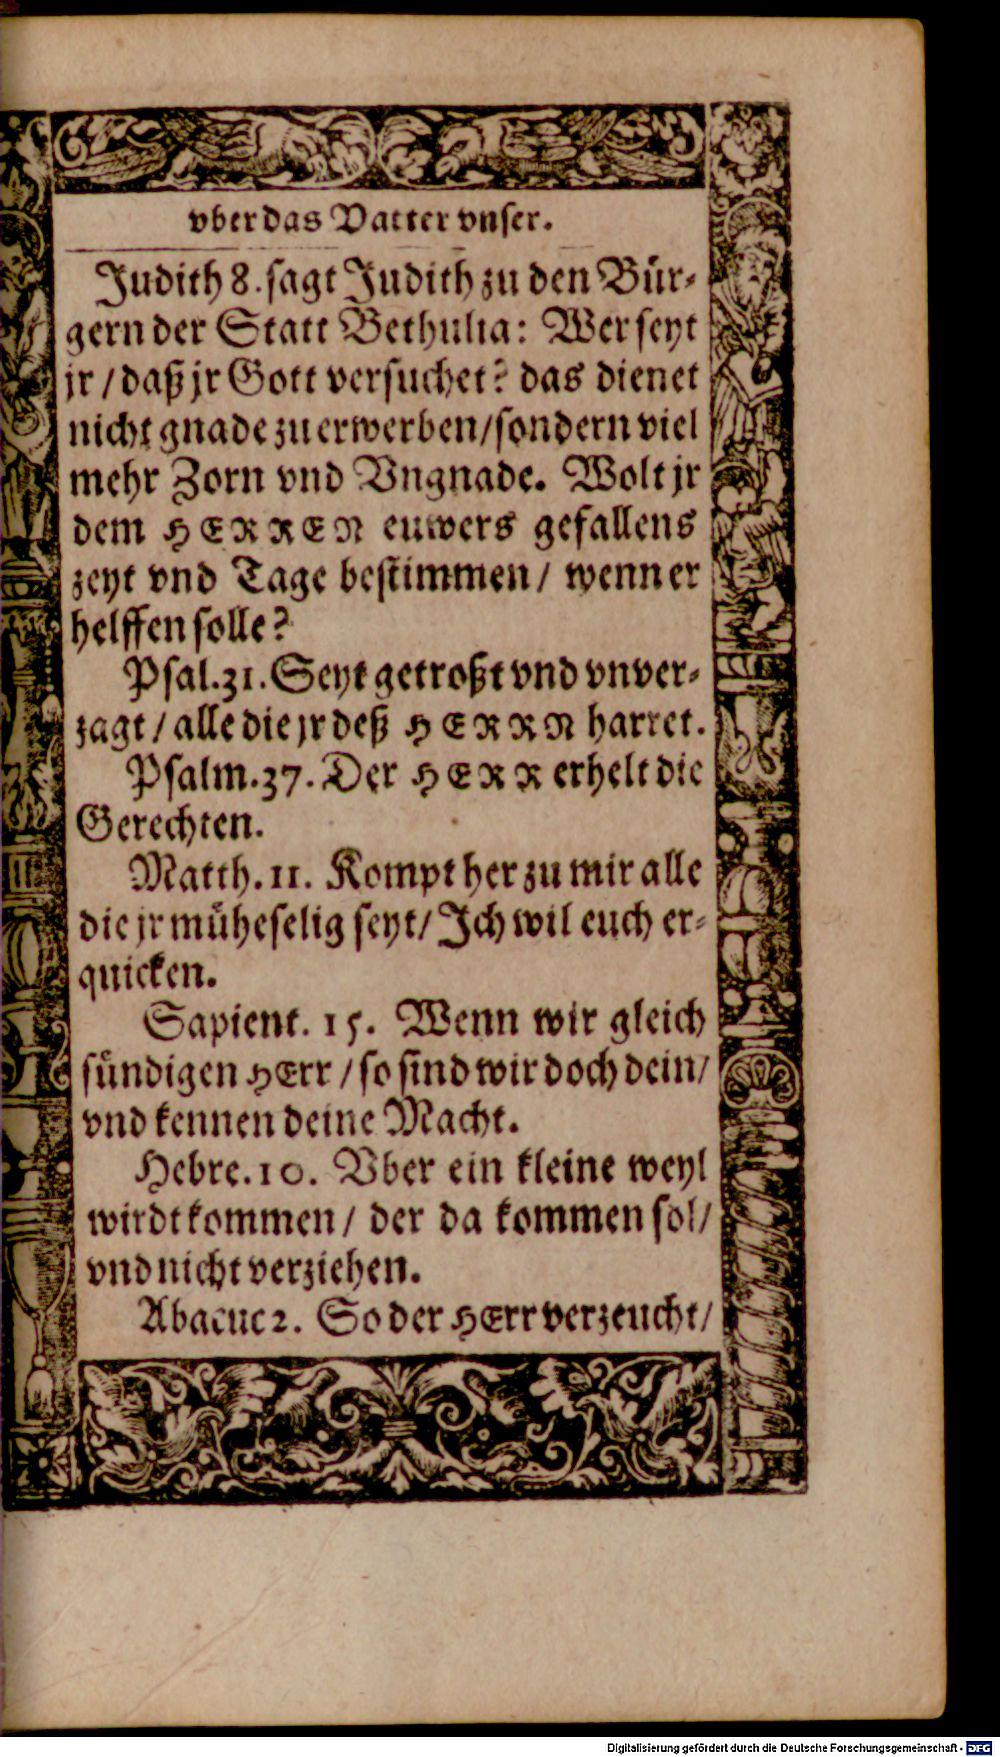 vber das Vatter vnser.
Judith 8. sagt Judith zu den Bür-
gern der Statt Bethulia: Wer seyt
jr / daß jr Gott versuchet? das dienet
nicht gnade zu erwerben / sondern viel
mehr Zorn vnd Vngnade. Wolt jr
dem HERREN euwers gefallens
zeyt vnd Tage bestimmen / wenn er
helffen solle?
Psal. 31. Seyt getroßt vnd vnver-
zagt / alle die jr deß HERRN harret.
Psalm. 37. Der HERR erhelt die
Gerechten.
Matth. 11. Kompt her zu mir alle
die jr müheselig seyt / Ich wil euch er-
quicken.
Sapient. 15. Wenn wir gleich
sündigen HErr / so sind wir doch dein /
vnd kennen deine Macht.
Hebre. 10. Vber ein kleine weyl
wirdt kommen / der da kommen sol /
vnd nicht verziehen.
Abacuc 2. So der HErr verzeucht /
Digitalisierung gefördert durch die Deutsche Forschungsgemeinschaft - DFG